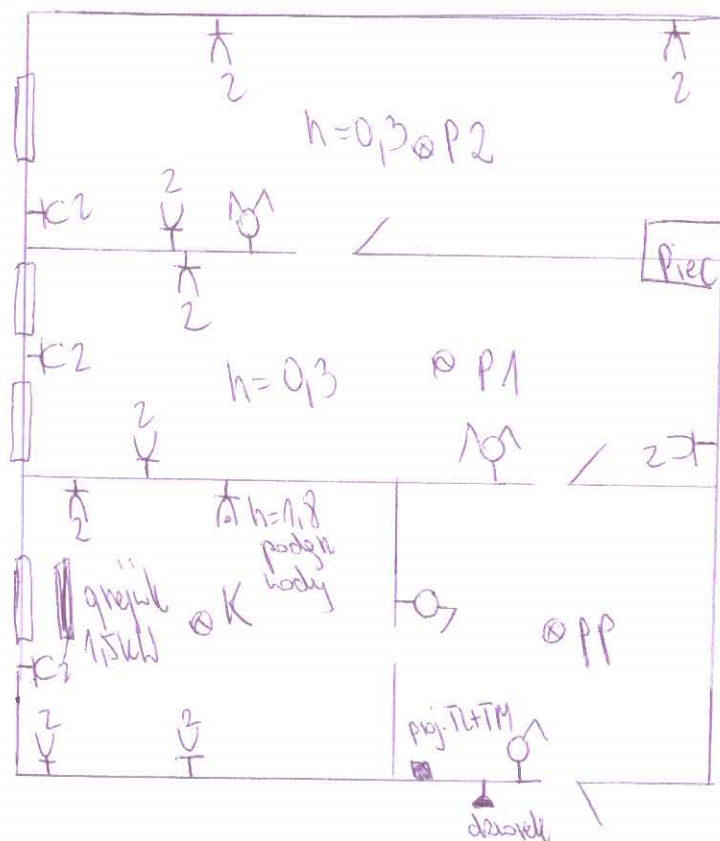 2
2
h=0,3
P2
2
2
Piec
2
2
h=0,3
P1
2
2
2
h=1,8
podgrz
wody
grzejnik
1,5kW
K
PP
2
2
2
proj. TL+TM
dzwonek